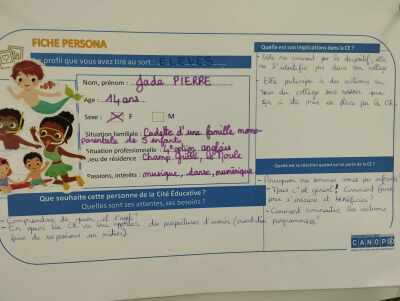 FICHE PERSONA
Le profil que vous avez tiré au sort : ELEVES
Nom, prénom : Jade PIERRE
Age : 14 ans
Sexe : F M
Situation familiale : Cadette d'une famille mono-
parentale de 5 enfants
Situation professionnelle : 4e option anglais
Lieu de résidence : Champ Grillé, le Moule
Passions, intérêts : musique, danse, numérique
Que souhaite cette personne de la Cité Éducative ?
Quelles sont ses attentes, ses besoins ?
- Comprendre de quoi il s'agit
- En quoi la CE va me apporter des perspectives d'avenir
Quelle est son implications dans la CE ?
- Elle ne connait pas le dispositif, elle
ne l'identifie pas dans son collège
- Elle participe à des actions au
sein du collège sans savoir que
ça a été mis en place par la CE.
Quelle est sa réaction quand on lui parle de la CE ?
- Pourquoi nous sommes mal informés
- Mais c'est génial ! Comment faire
pour s'inscrire et bénéficier ?
- Comment connaître les actions
programmées ?
CANOPÉ